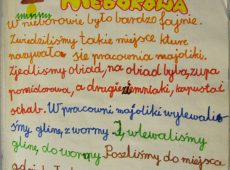 NIEBOROWA
W nieborowie było bardzo fajnie.
Zwiedziliśmy takie miejsce kture
nazywało się pracownia majoliki.
Zjedliśmy obiad, na obiad była, zupa
pomidorowa, a drugie ziemniaki, kapusta i
schab. W pracowni majoliki wylewali-
śmy glinę, z wormy I, wlewaliśmy
glinę, do wormy. Poszliśmy do miejsca